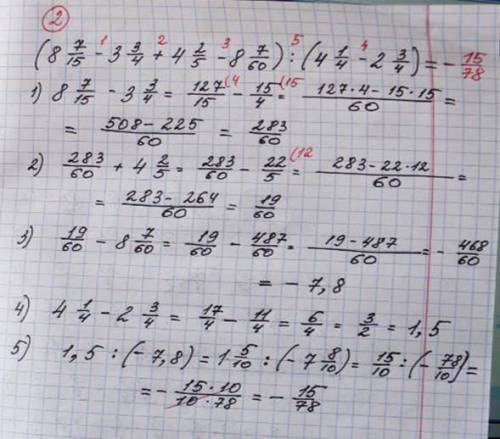 2
(8 7/15 - 3 3/4 + 4 2/5 - 8 7/60) : (4 1/4 - 2 3/4) = - 15/78
1) 8 7/15 - 3 3/4 = 127/15 (4 - 15/4 (15 = 127·4-15·15/60 =
= 508-225/60 = 283/60
2) 283/60 + 4 2/5 = 283/60 - 22/5 (12 = 283-22·12/60 =
= 283-264/60 = 19/60
3) 19/60 - 8 7/60 = 19/60 - 487/60 = 19-487/60 = - 468/60
= - 7,8
4) 4 1/4 - 2 3/4 = 17/4 - 11/4 = 6/4 = 3/2 = 1,5
5) 1,5 : (-7,8) = 1 5/10 : (-7 8/10) = 15/10 : (- 78/10) =
= - 15·10/10·78 = - 15/78